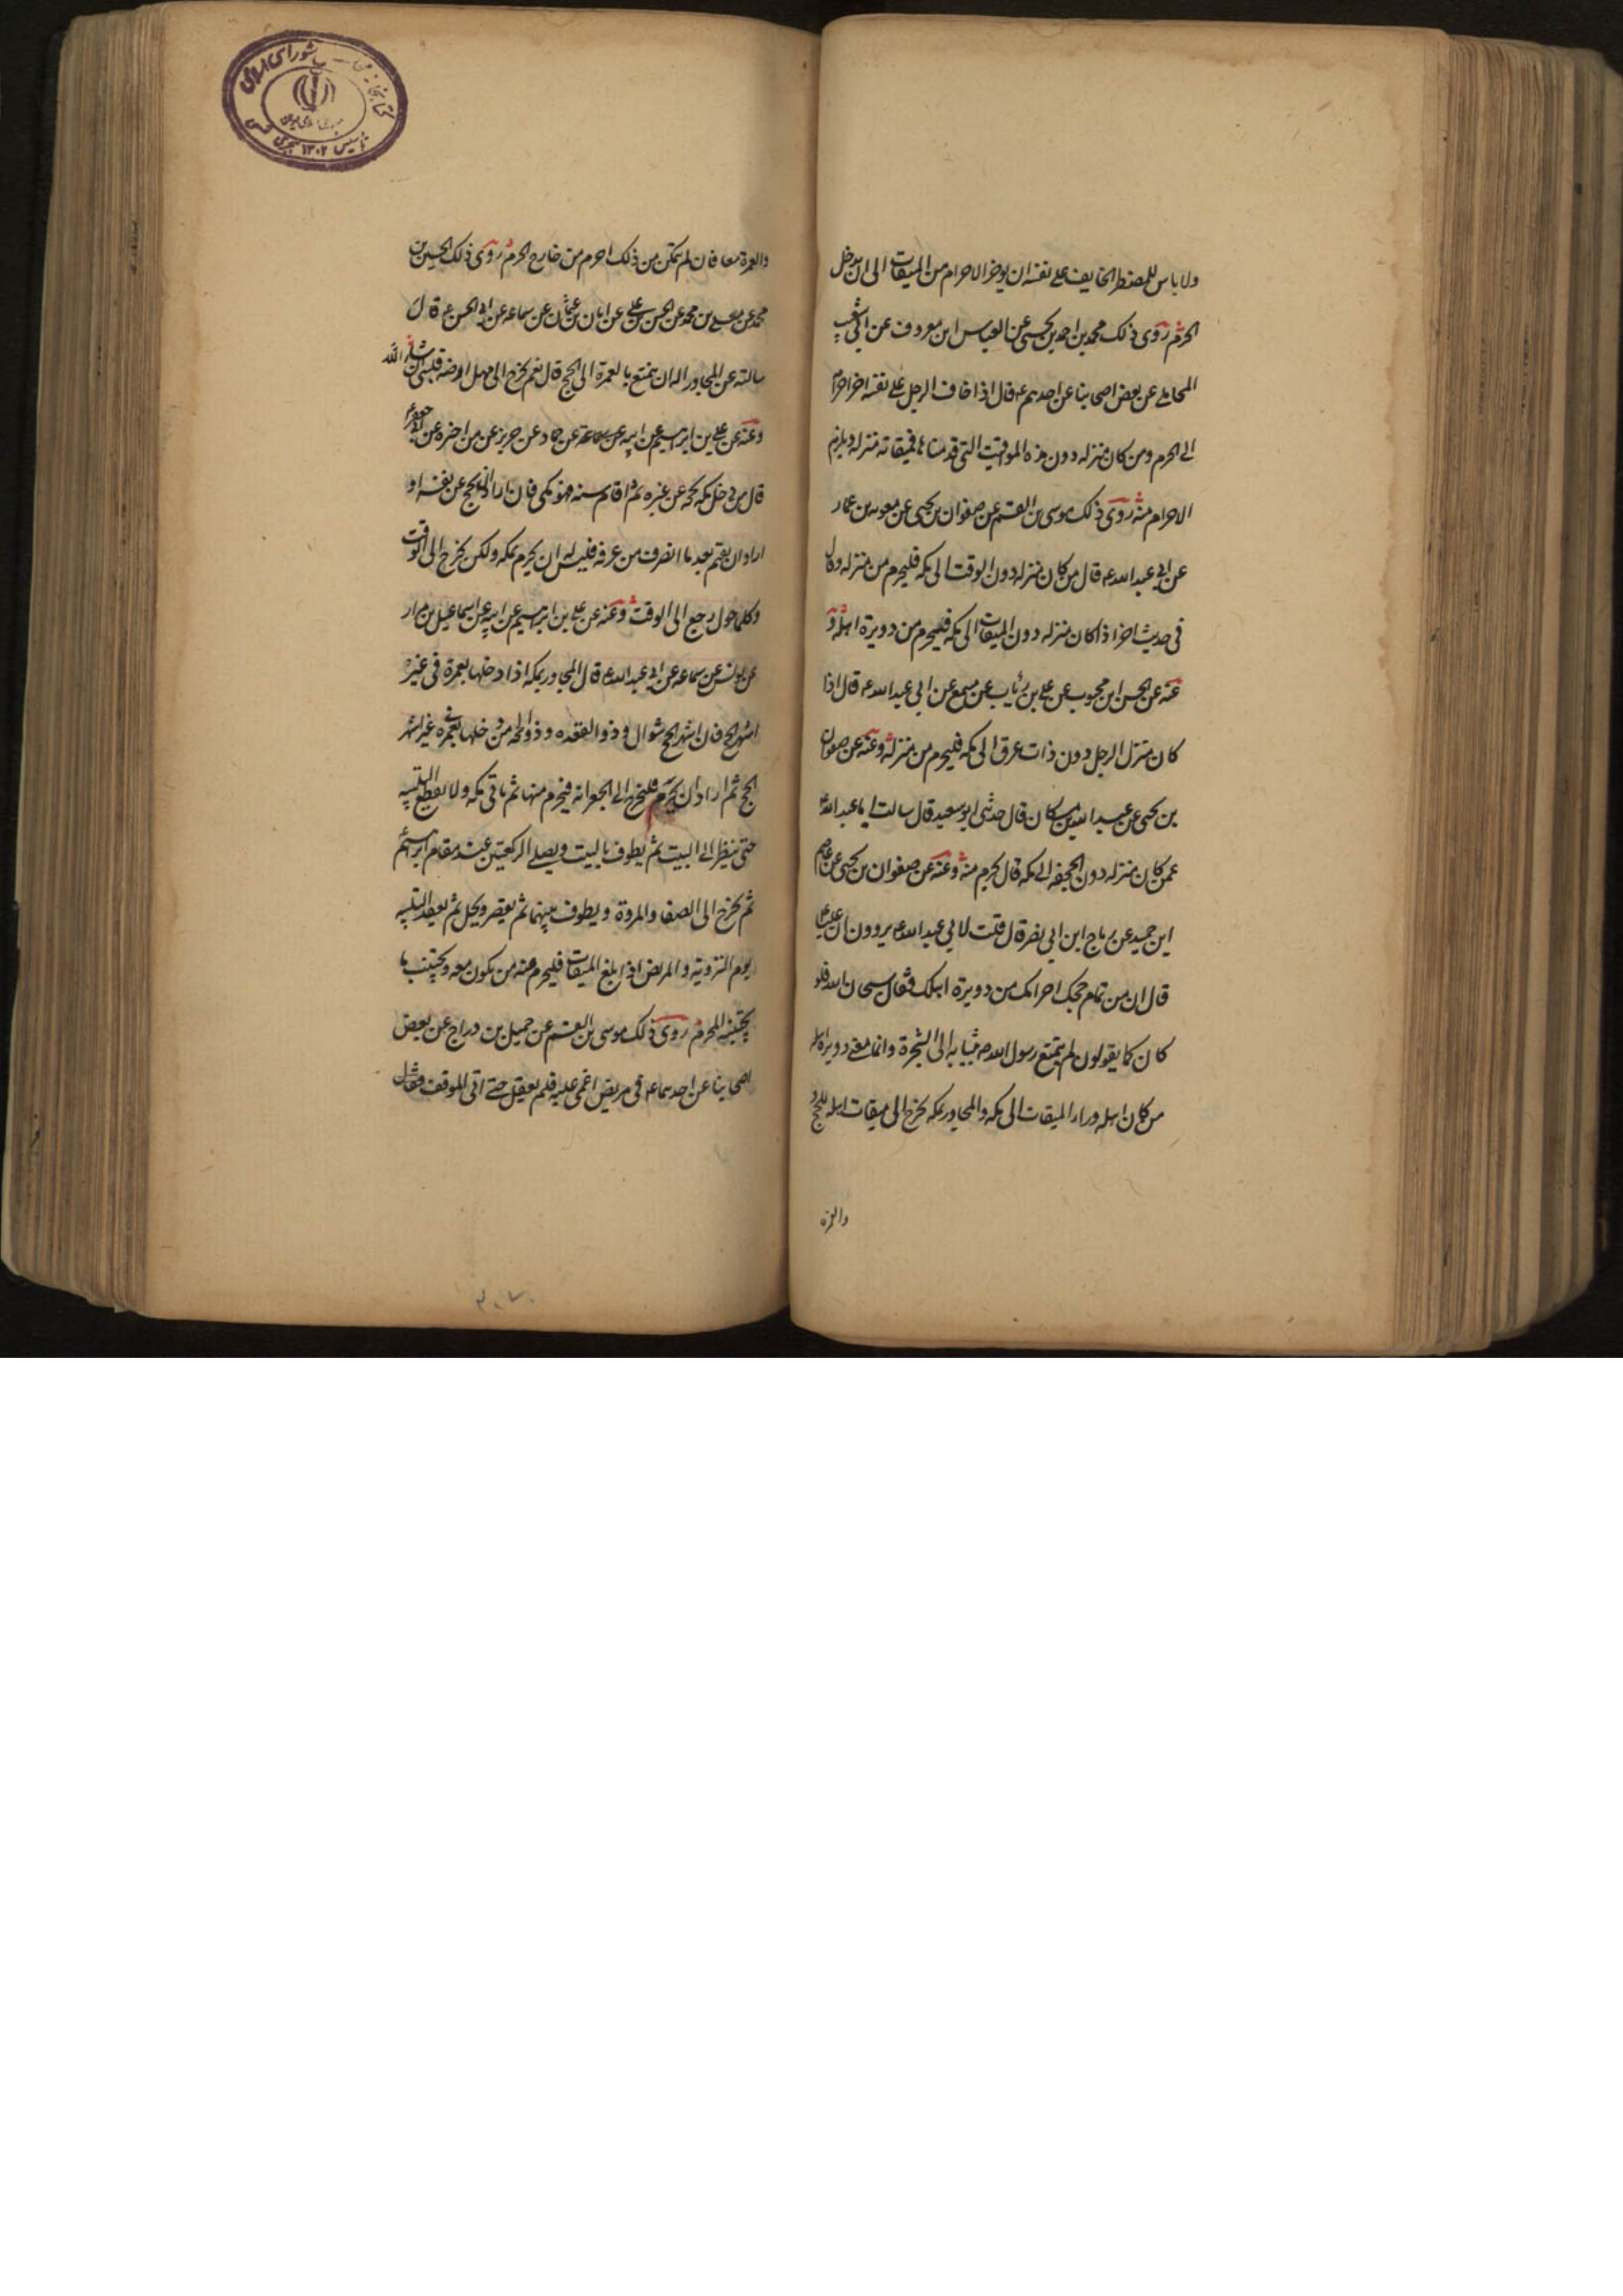 ولا باس للمضطر الخايف على نفسه ان يوخر الاحرام من الميقات الى ان يدخل
الحرم روى ذلك محمد بن احمد بن يحيى عن العباس ابن معروف عن ابي شعيب
المحاملي عن بعض اصحابنا عن احدهم ع قال اذا خاف الرجل على نفسه اخر احرامه
الى الحرم ومن كان منزله دون هذه المواقيت التي قدمناها فميقاته منزله ويلزم
الاحرام منه روى ذلك موسى بن القسم عن صفوان بن يحيى عن معويه بن عمار
عن ابي عبد الله ع قال من كان منزله دون الوقت الى مكه فليحرم من منزله وقال
في حديث اخر اذا كان منزله دون الميقات الى مكه فليحرم من دويرة اهله و
عنه عن الحسن ابن محبوب عن علي بن رئاب عن مسمع عن ابي عبد الله ع قال اذا
كان منزل الرجل دون ذات عرق الى مكه فليحرم من منزله وعنه عن صفوان
بن يحيى عن عبد الله بن مسكان قال حدثني ابو سعيد قال سالت ابا عبد الله ع
عمن كان منزله دون الجحفه الى مكه قال يحرم منه وعنه عن صفوان بن يحيى عن عاصم
ابن حميد عن رباح ابن ابي نصر قال قلت لابي عبد الله ع يروون ان عليا ع
قال ان من تمام حجك احرامك من دويرة اهلك فقال سبحان الله فلو
كان كما يقولون لم يتمتع رسول الله ص بثيابه الى الشجرة وانما معنى دويرة اهله
من كان اهله وراء الميقات الى مكه والمجاور بمكه يخرج الى ميقات اهله للحج و
والعمرة
والعمرة معا فان لم يتمكن من ذلك احرم من خارج الحرم روى ذلك الحسين بن
محمد عن معلى بن محمد عن الحسن بن علي عن ابان بن عثمان عن سماعه عن ابي الحسن ع قال
سالته عن المجاور اله ان يتمتع بالعمرة الى الحج قال نعم يخرج الى مهل ارضه فيلبي ان شاء الله
وعنه عن علي بن ابرهيم عن ابيه عن حماد عن حريز عن من اخبره عن ابي جعفر ع
قال من دخل مكه بحجه عن غيره ثم اقام سنه فهو مكي فان اراد ان يحج عن نفسه او
اراد ان يعتمر بعد ما انصرف من عرفه فليس له ان يحرم بمكه ولكن يخرج الى الوقت
وكلما حول رجع الى الوقت وعنه عن علي بن ابرهيم عن ابيه عن اسماعيل بن مرار
عن يونس عن سماعه عن ابي عبد الله ع قال المجاور بمكه اذا دخلها بعمرة في غير
اشهر الحج فان اشهر الحج شوال وذو القعده وذو الحجه من دخلها بعمره في غير اشهر
الحج ثم اراد ان يحرم فليخرج الى الجعرانه فيحرم منها ثم ياتي مكه ولا يقطع التلبيه
حتى ينظر الى البيت ثم يطوف بالبيت ويصلي الركعتين عند مقام ابرهيم ع
ثم يخرج الى الصفا والمروة ويطوف بينهما ثم يقصر ويحل ثم يعقد التلبيه
يوم التروية والمريض اذا بلغ الميقات فليحرم عنه من يكون معه ويجنب ما
يجتنبه المحرم روى ذلك موسى بن القسم عن جميل بن دراج عن بعض
اصحابنا عن احدهما ع في مريض اغمى عليه فلم يعقل حتى اتى الموقف فقال